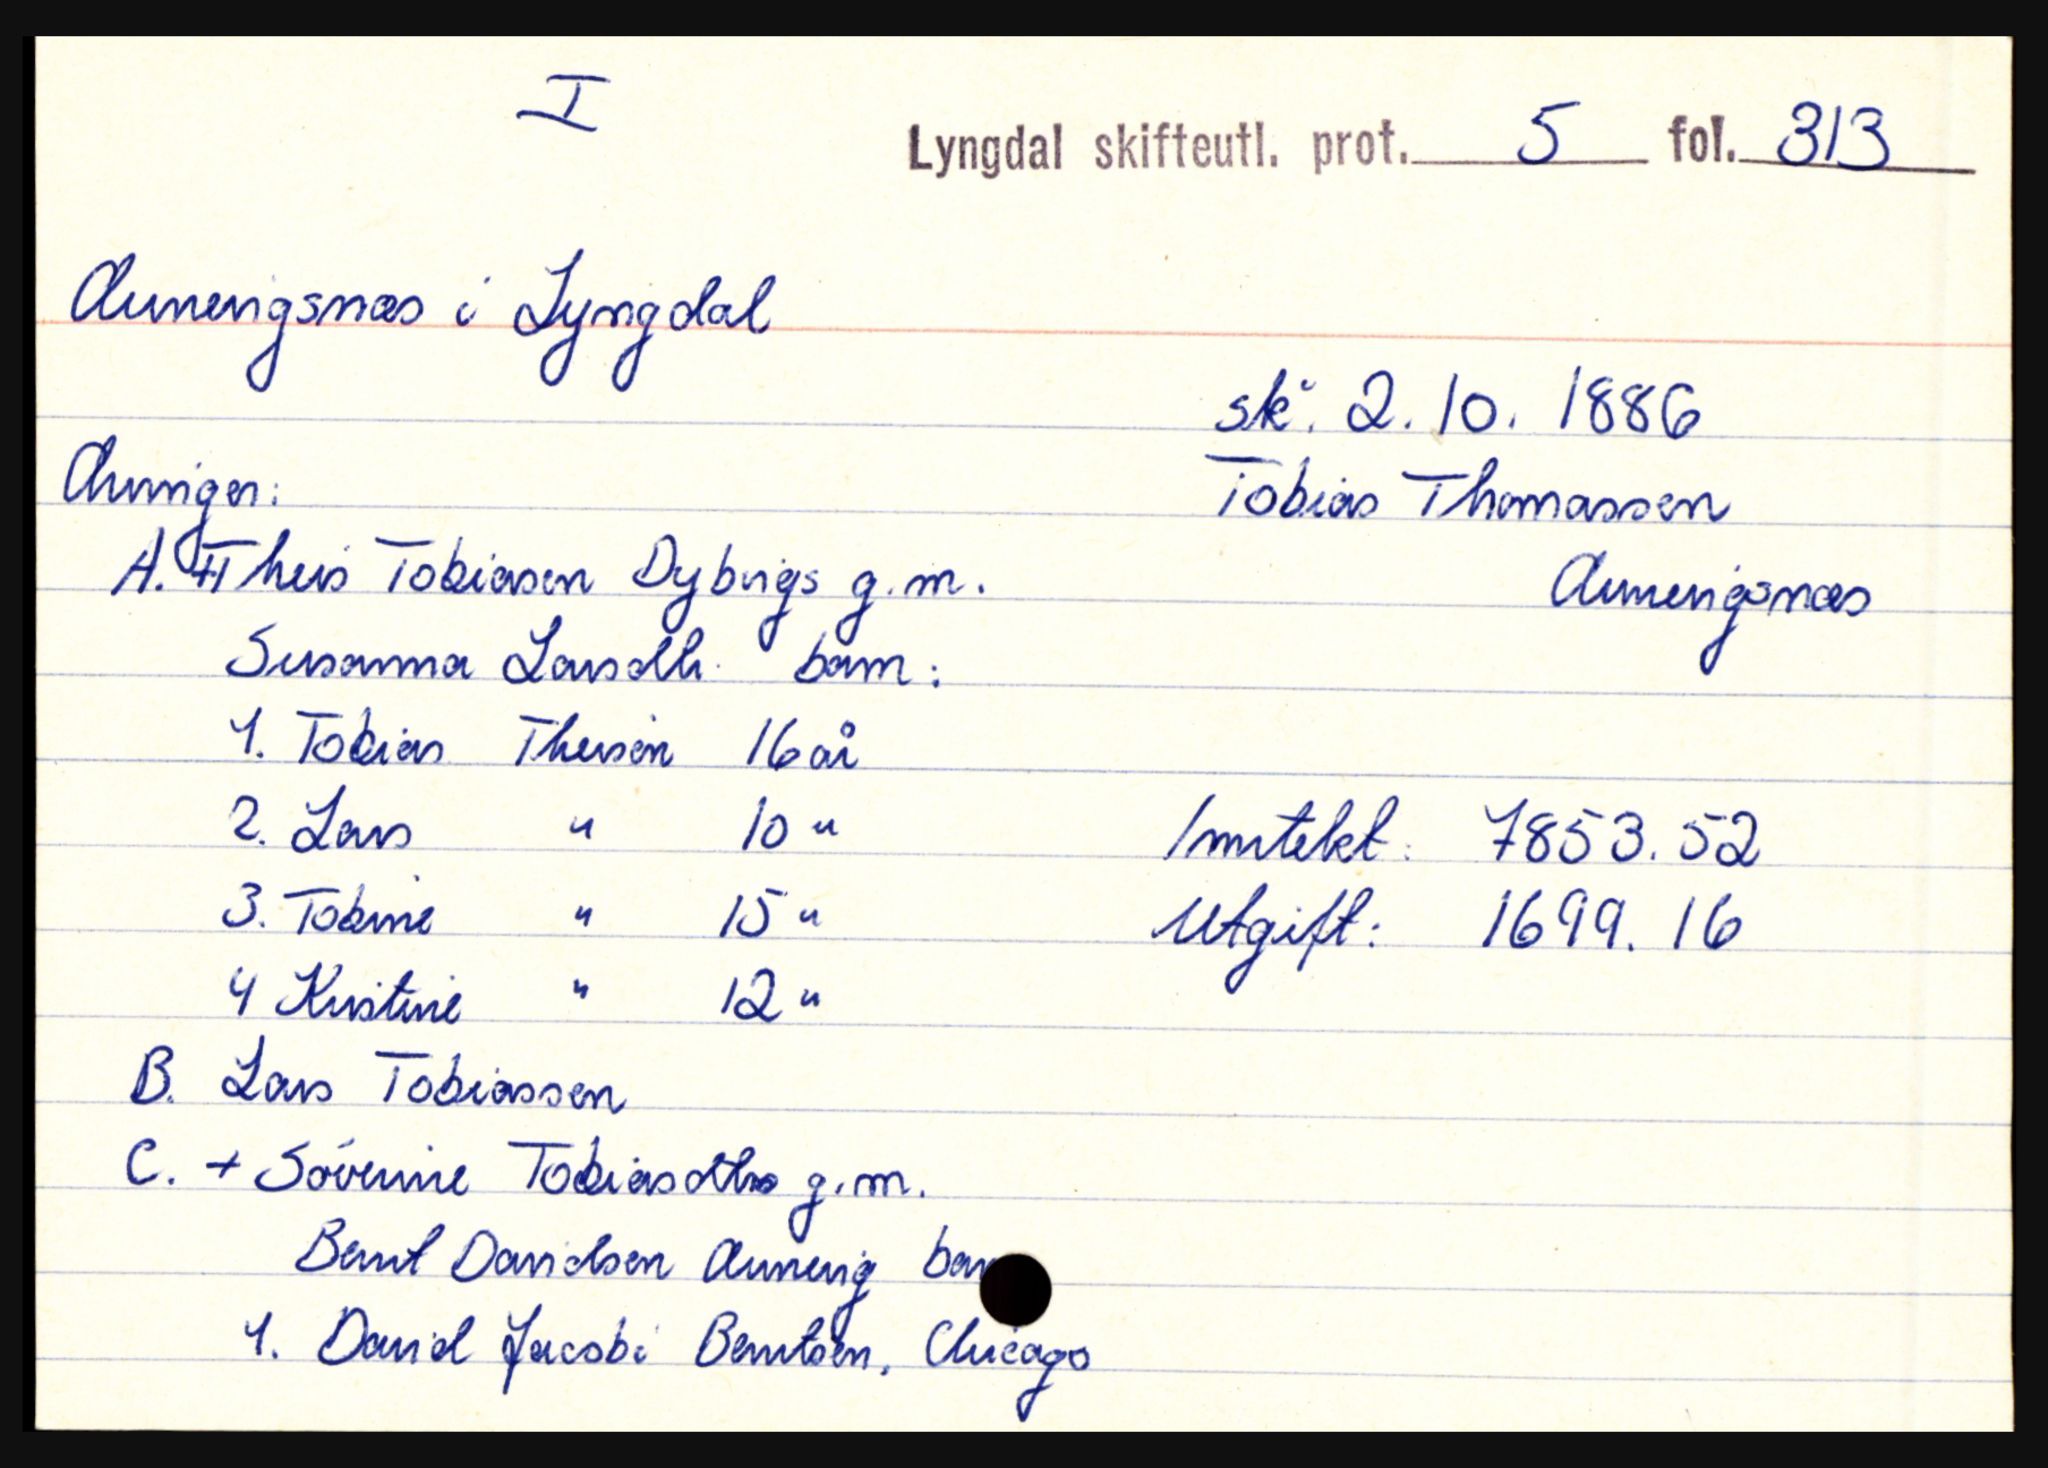 I
Lyngdal skifteutl. prot. 5 fol. 313
Aunevigsnæs i Lyngdal
sk. 2.10.1886
Arvinger:
Tobias Thomassen
A. + Theis Tobiasen Dybvigs g.m.
Aunevigsnæs
Susanna Larsdtr. barn:
1. Tobias Theisen 16 år
2. Lars " 10 "
Inntekt: 7853.52
3. Tobine " 15 "
Utgift: 1699.16
4 Kristine " 12 "
B. Lars Tobiassen
C. + Sóverine Tobiasdtr g.m.
Bernt Davidsen Aunevig barn
1. David Jacobi Berntsen, Chicago